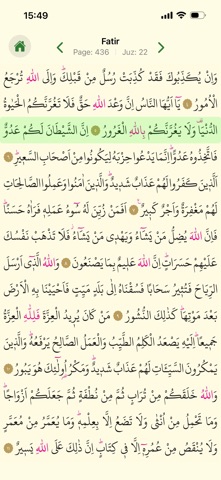 15:49
Fatir
Page: 436 Juz: 22
وَاِنْ يُكَذِّبُوكَ فَقَدْ كُذِّبَتْ رُسُلٌ مِنْ قَبْلِكَۜ وَاِلَى اللّٰهِ تُرْجَعُ
الْاُمُورُ ﴿٤﴾ يَٓا اَيُّهَا النَّاسُ اِنَّ وَعْدَ اللّٰهِ حَقٌّ فَلَا تَغُرَّنَّكُمُ الْحَيٰوةُ
الدُّنْيَا۠ وَلَا يَغُرَّنَّكُمْ بِاللّٰهِ الْغَرُورُ ﴿٥﴾ اِنَّ الشَّيْطَانَ لَكُمْ عَدُوٌّ
فَاتَّخِذُوهُ عَدُوًّاۜ اِنَّمَا يَدْعُوا حِزْبَهُ لِيَكُونُوا مِنْ اَصْحَابِ السَّعِيرِۜ ﴿٦﴾
اَلَّذِينَ كَفَرُوا لَهُمْ عَذَابٌ شَدِيدٌۜ وَالَّذِينَ اٰمَنُوا وَعَمِلُوا الصَّالِحَاتِ
لَهُمْ مَغْفِرَةٌ وَاَجْرٌ كَبِيرٌ۟ ﴿٧﴾ اَفَمَنْ زُيِّنَ لَهُ سُٓوءُ عَمَلِهِ فَرَاٰهُ حَسَنًاۜ
فَاِنَّ اللّٰهَ يُضِلُّ مَنْ يَشَٓاءُ وَيَهْدِي مَنْ يَشَٓاءُۘ فَلَا تَذْهَبْ نَفْسُكَ
عَلَيْهِمْ حَسَرَاتٍۜ اِنَّ اللّٰهَ عَلِيمٌ بِمَا يَصْنَعُونَ ﴿٨﴾ وَاللّٰهُ الَّذِٓي اَرْسَلَ
الرِّيَاحَ فَتُثِيرُ سَحَابًا فَسُقْنَاهُ اِلٰى بَلَدٍ مَيِّتٍ فَاَحْيَيْنَا بِهِ الْاَرْضَ
بَعْدَ مَوْتِهَاۜ كَذٰلِكَ النُّشُورُ ﴿٩﴾ مَنْ كَانَ يُرِيدُ الْعِزَّةَ فَلِلّٰهِ الْعِزَّةُ
جَمِيعًاۜ اِلَيْهِ يَصْعَدُ الْكَلِمُ الطَّيِّبُ وَالْعَمَلُ الصَّالِحُ يَرْفَعُهُۜ وَالَّذِينَ
يَمْكُرُونَ السَّيِّـَٔاتِ لَهُمْ عَذَابٌ شَدِيدٌۜ وَمَكْرُ اُو۬لٰٓئِكَ هُوَ يَبُورُ ﴿١٠﴾
وَاللّٰهُ خَلَقَكُمْ مِنْ تُرَابٍ ثُمَّ مِنْ نُطْفَةٍ ثُمَّ جَعَلَكُمْ اَزْوَاجًاۜ
وَمَا تَحْمِلُ مِنْ اُنْثٰى وَلَا تَضَعُ اِلَّا بِعِلْمِهِۜ وَمَا يُعَمَّرُ مِنْ مُعَمَّرٍ
وَلَا يُنْقَصُ مِنْ عُمُرِهِٓ اِلَّا فِي كِتَابٍۜ اِنَّ ذٰلِكَ عَلَى اللّٰهِ يَسِيرٌ ﴿١١﴾